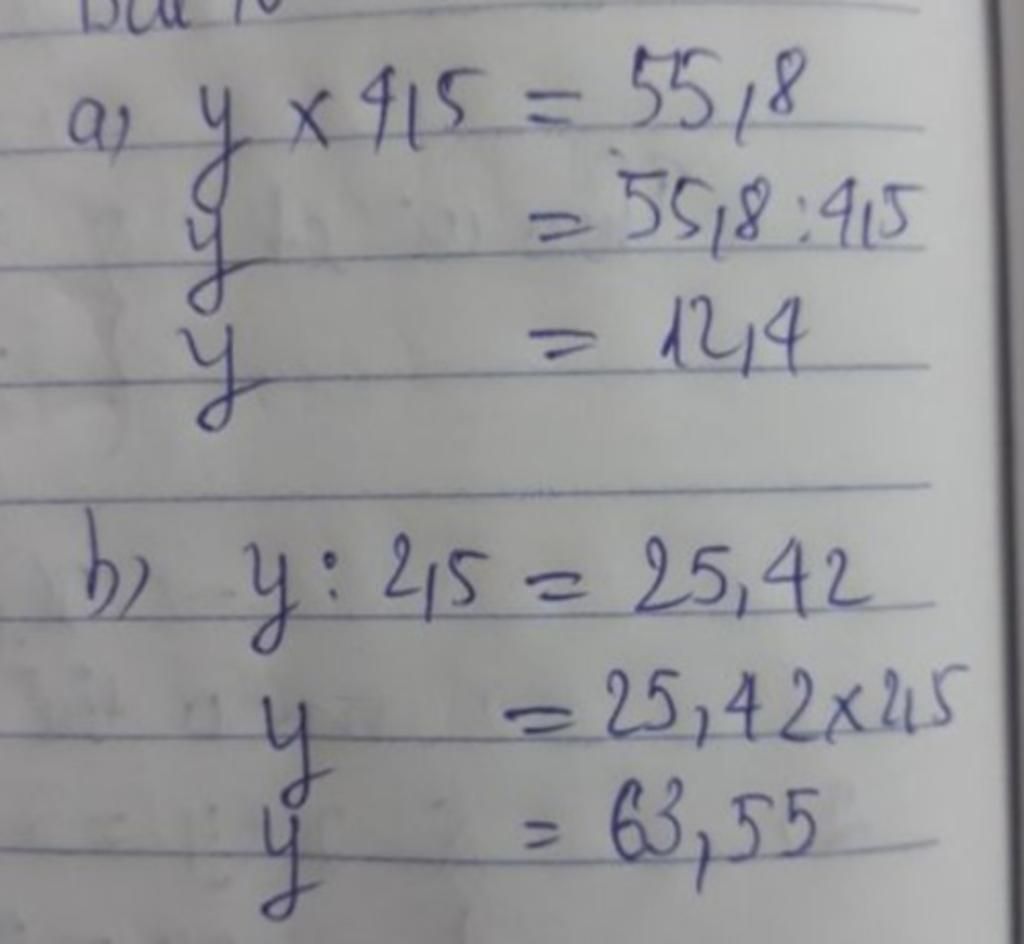 a) y x 4,5 = 55,8
y = 55,8 : 4,5
y = 12,4
b) y : 2,5 = 25,42
y = 25,42 x 2,5
y = 63,55